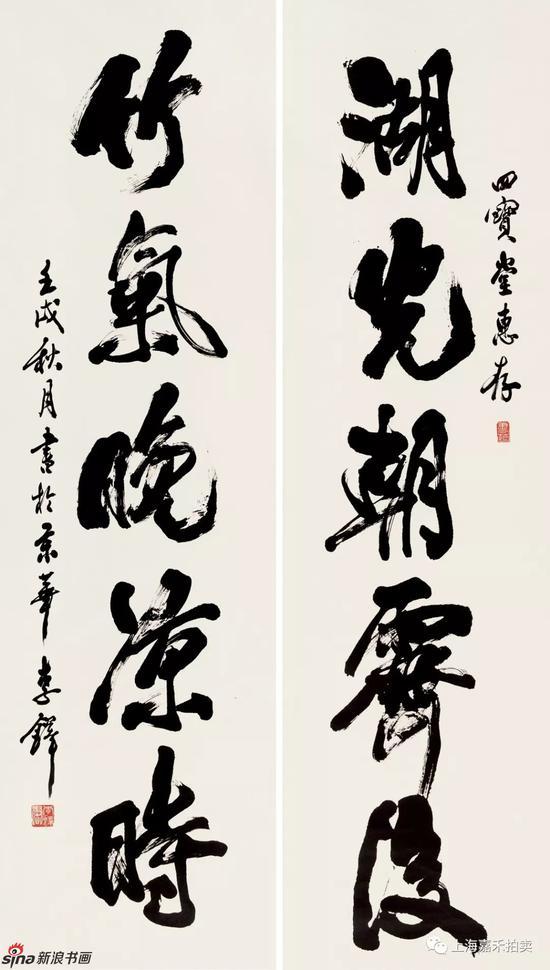 四寶堂惠存
湖光朝霽後
竹氣晚凉時
壬戌秋月書於京華李鐸
sina新浪书画
上海嘉禾拍卖